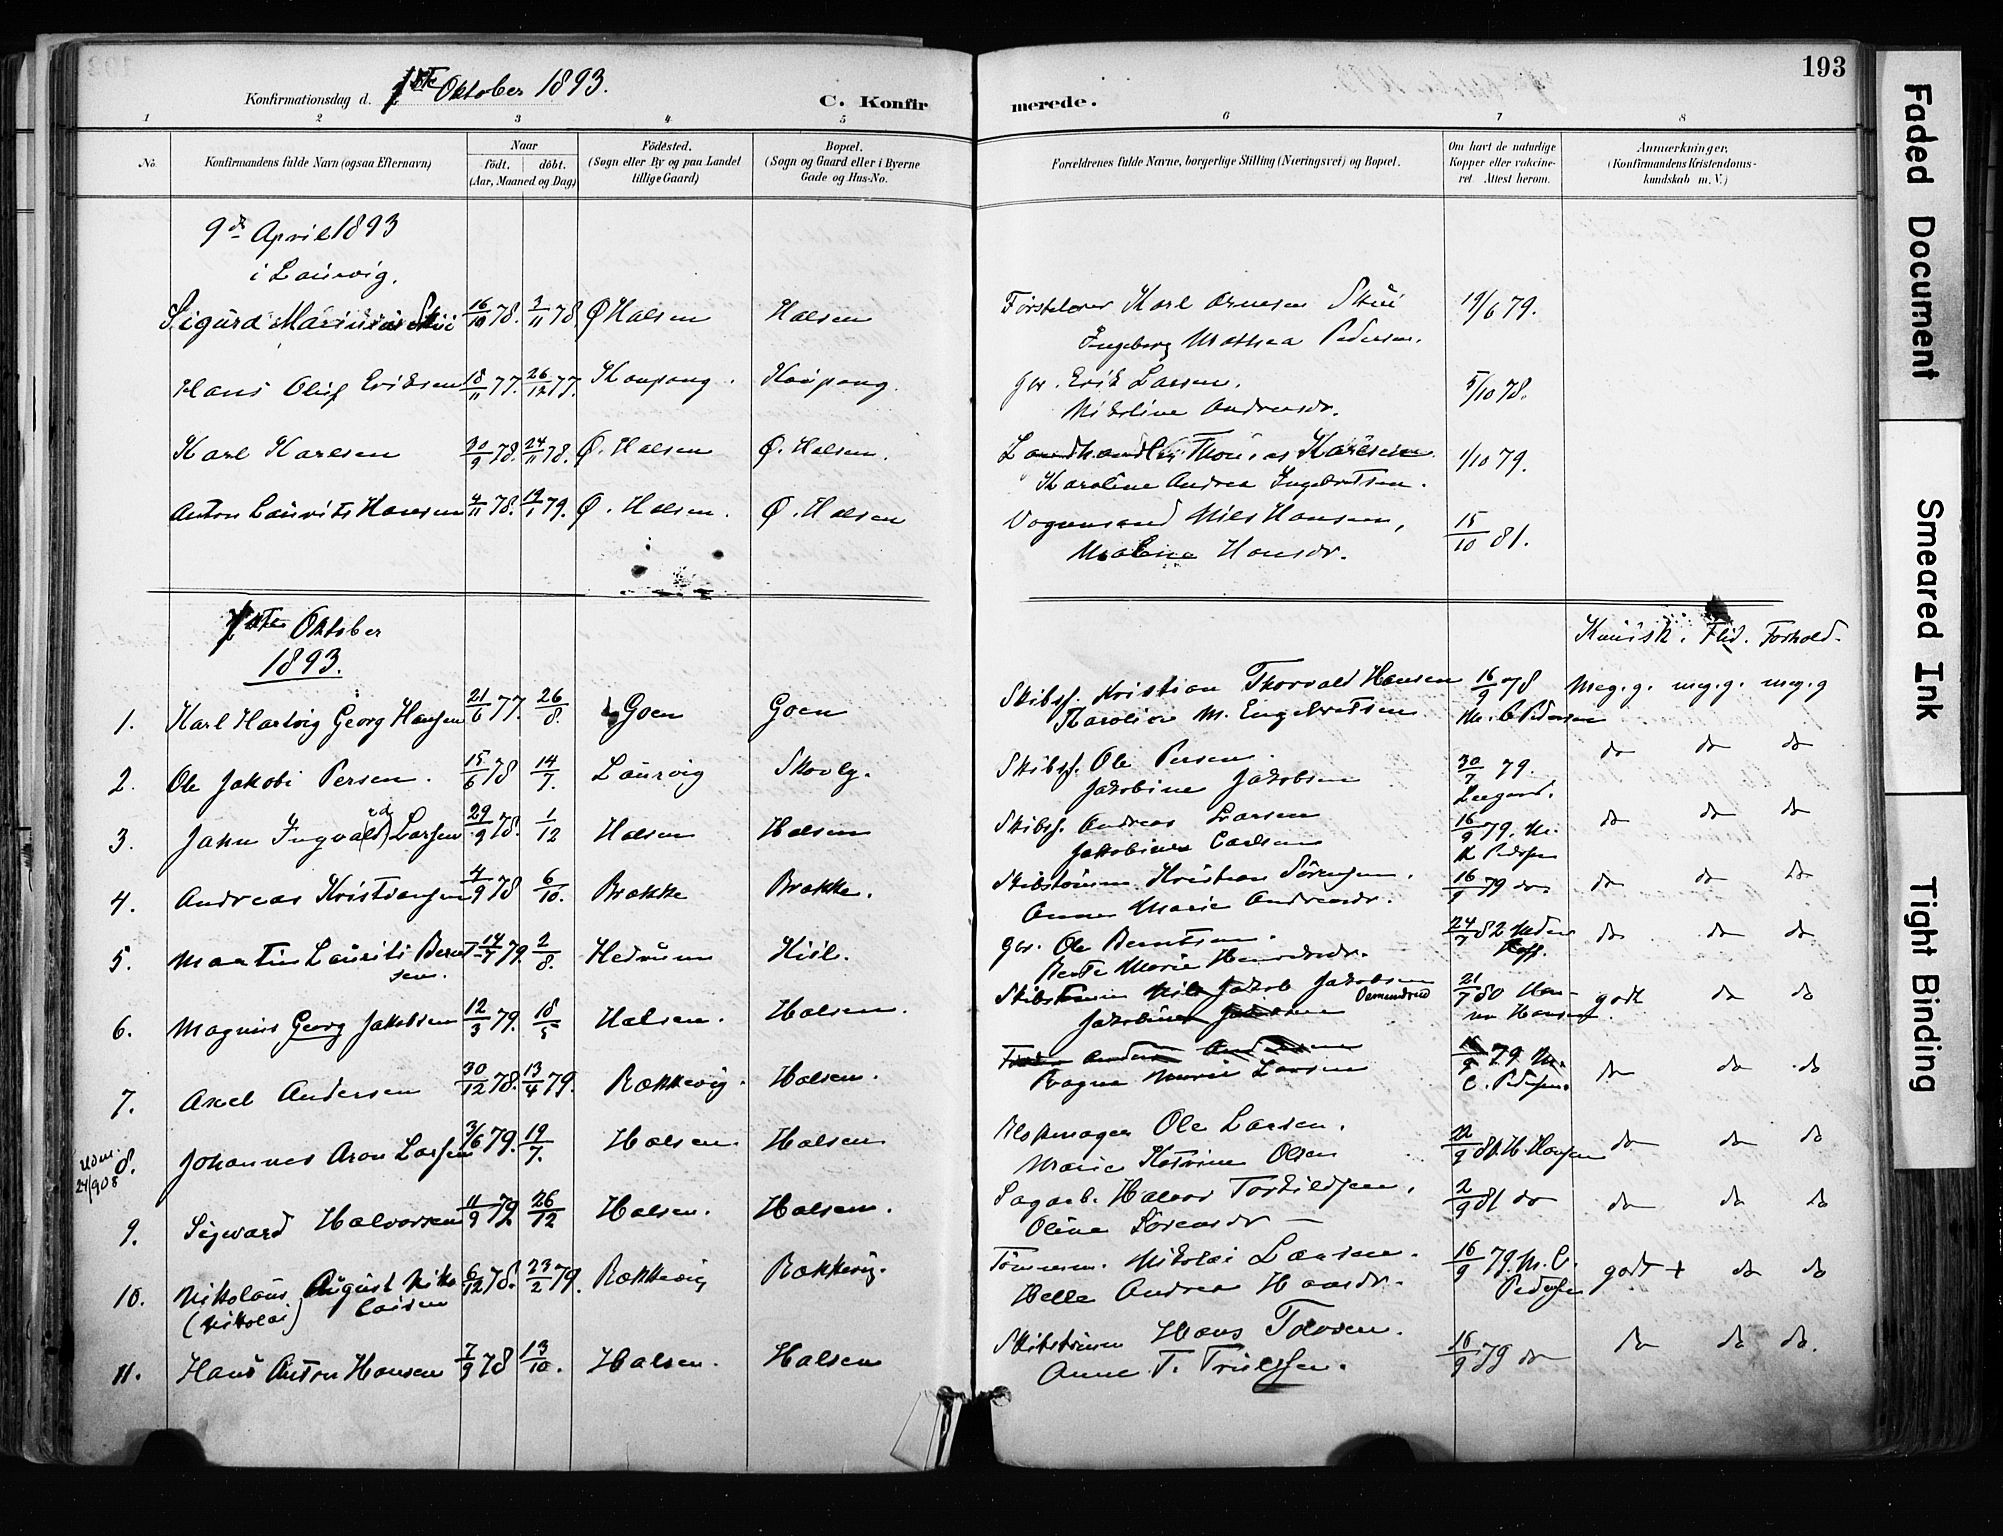 193
Konfirmationsdag d. 1ste Oktober 1893.
C. Konfirmerede.
1 2 3 4 5 6 7 8
No.
Konfirmandens fulde Navn (ogsaa Efternavn)
Naar
født. døbt.
(Aar, Maaned og Dag)
Födested.
(Sogn eller By og paa Landet
tillige Gaard)
Bopæl.
(Sogn og Gaard eller i Byerne
Gade og Hus-No.
Forældrenes fulde Navne, borgerlige Stilling (Næringsvei) og Bopæl.
Om havt de naturlige
Kopper eller vakcine-
ret Attest herom.
Anmerkninger,
(Konfirmandens Kristendoms-
kundskab m. V.)
9de April 1893
i Laurvig.
Sigurd 16/10 78. 3/11 78 Ø Halsen Halsen Karl Arnesen 19/6 79.
Ingeborg Mathea Pedersen.
Hans Oluf Eriksen 18/11 77. 26/12 77. Kaupang. Kaupang. Gbr. Erik Larsen. 5/10 78.
Nikoline Andreasdr.
Karl Karlsen 30/9 78. 24/11 78. Ø. Halsen Ø. Halsen. Landhandler Thomas Karlsen 1/10 79.
Karoline Andrea Ingebretsen.
Anton Laurits Hansen 4/11 78. 19/1 79. Ø. Halsen. Ø. Halsen Vognmand Nils Hansen, 15/10 81.
Malene Hansdr.
1ste Oktober
1893.
Kundsk. Flid. Forhold.
1. Karl Hartvig Georg Hansen 21/6 77. 26/8. Goen Goen Skibsf. Kristian Thorvald Hansen 16/9 78 Meg. g. meg. g. meg. g
Karoline M. Engebretsen M. C Pedersen
2. Ole Jakobi Persen. 15/6 78 14/7. Laurvig Skovlg. Skibsf. Ole Persen. 30/7 79. do do do
Jakobine Jakobsen
3. John Ingvald (rd) Larsen 29/9 78. 1/12 Halsen Halsen Skibsf. Andreas Larsen 16/9 79. M. do do do
Jakobine Carlsen Pedersen
4. Andreas Kristiansen 4/9 78 6/10. Brække Brække. Skibstømm. Kristian Sörensen. 16/9 79 do do do do
Anne Marie Andreasdr.
5. Martin Laurits Bernt- 14/7 79. 2/8. Hedrum Gbr. Ole Berntsen. 24/7 82 do do do
sen. Berte Marie
6. Magnus Georg Jakobsen 12/3 79. 18/5 Halsen. Halsen. Skibstømm Nils Jakob Jakobsen 21/7 80 godt do do
Jakobine
7. Axel Andersen 30/12 78. 13/4 79. Rækkevig. Halsen. 16/9 79. M. do do do
Ragna Marie Larsen C. Pedersen.
Udm.
24/9 08
8. Johannes Aron Larsen 3/6 79. 19/7. Halsen. Halsen Ole Larsen. 22/9 80. H. Hansen do do do
Marie Katrine Olsen
9. Sigward Halvorsen 11/9 79 26/12 Halsen. Halsen. Sagarb. Halvor Torkildsen, 2/9 81 do do do do
Oline Sörensdr
10. Nikolaus August Niko- 6/12 78. 23/2 79. Rækkevig Rækkevig. Tömmerm. Nikolai Larsen. 16/9 79. M. C. godt + do do
(Nikolai) laisen Helle Andrea Hansdr. Pedersen
11. Hans Anton Hansen 7/9 78 13/10. Halsen. Halsen Skibstömm Hans Tovsen. 16/9 79 do do do do.
Anne T. Trulssen.
Faded Document
Smeared Ink
Tight Binding